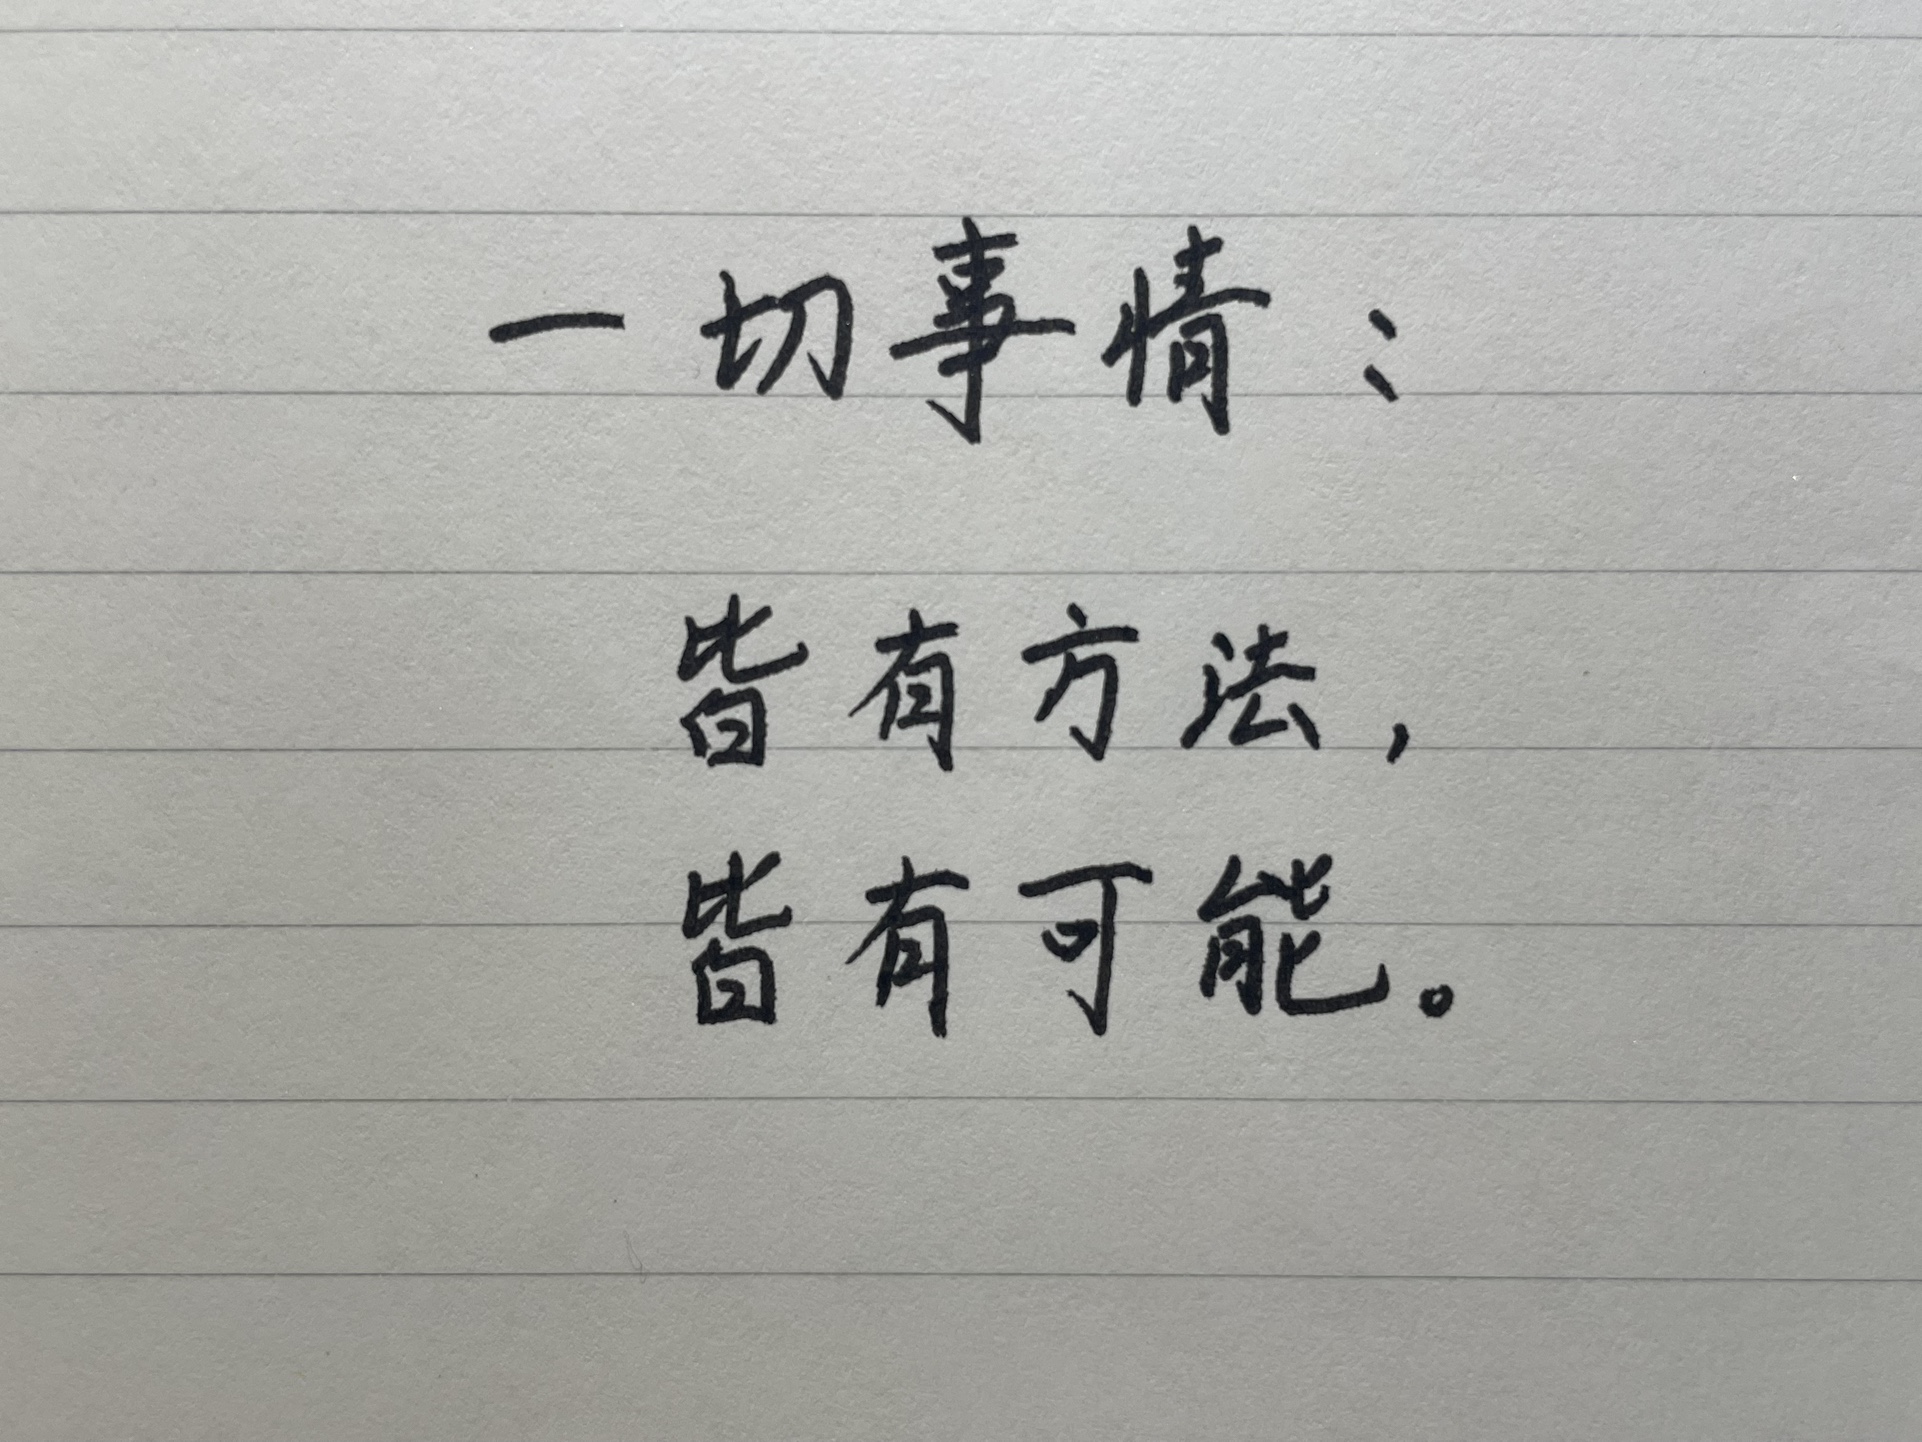 一切事情：
皆有方法，
皆有可能。